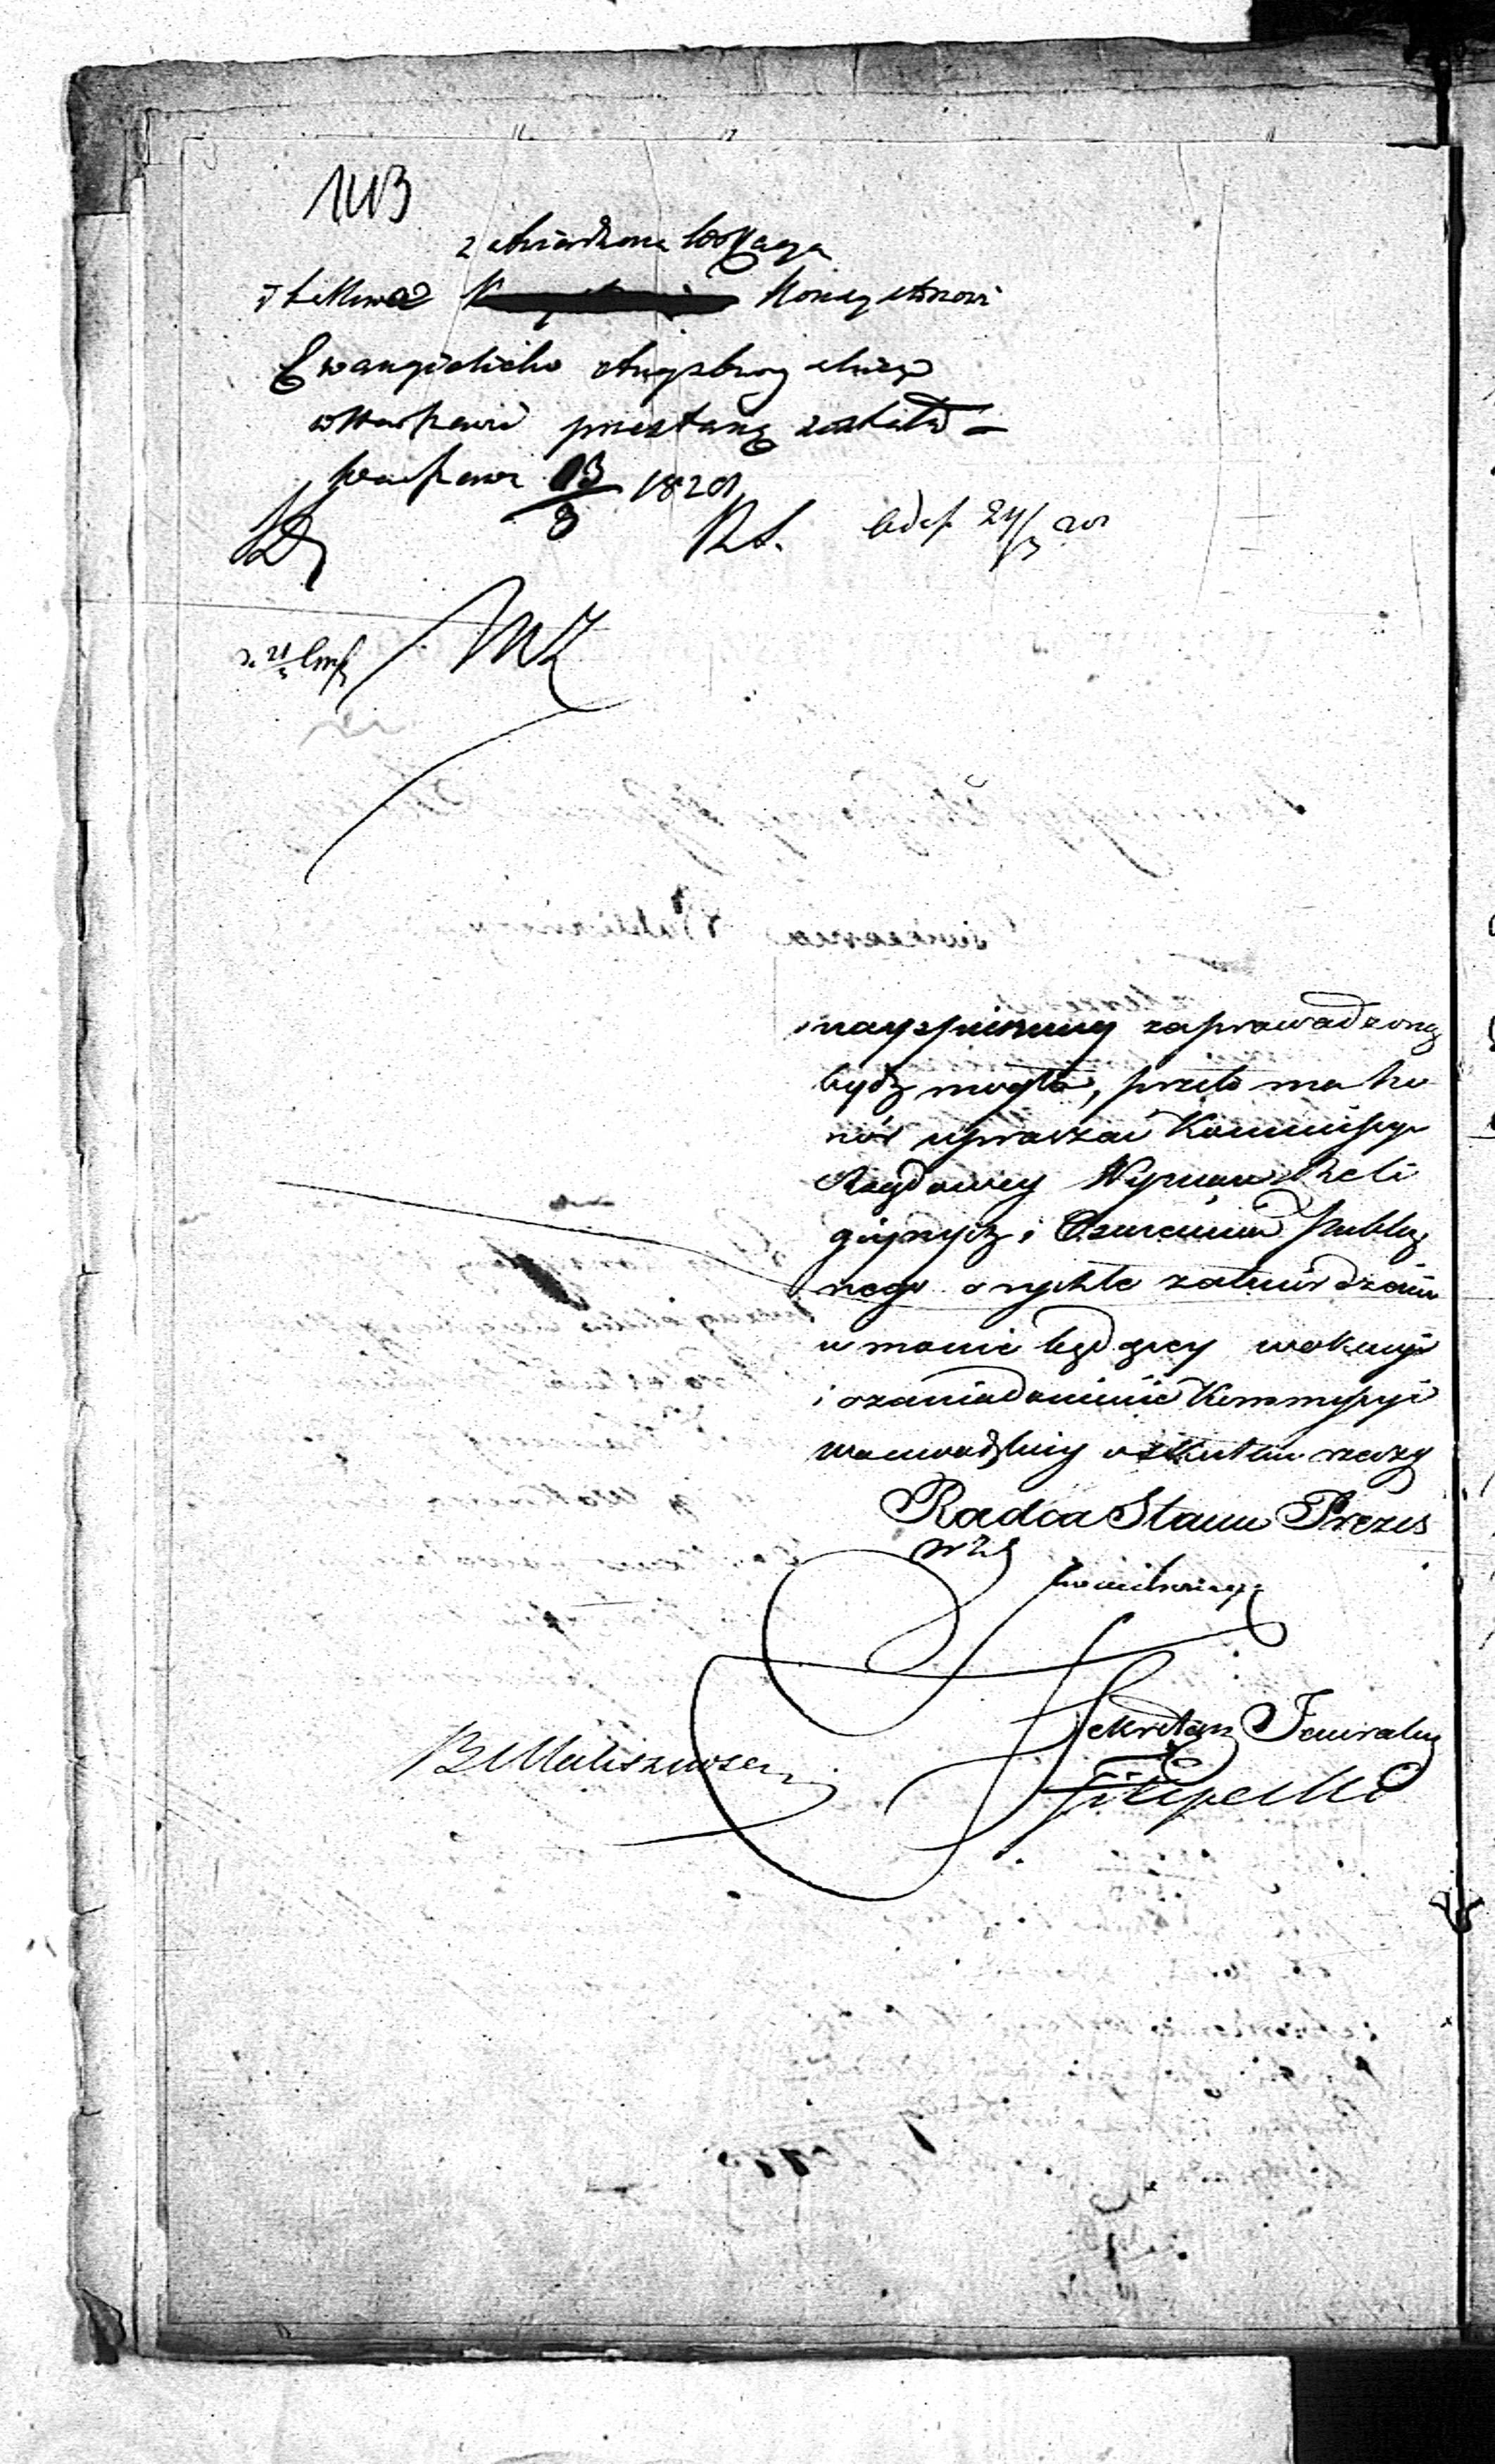 143
zatwierdzona wokacya
Konsystorzowi
Ewangielicko Augsburgskiego
w Warszawie przesłaną została
Warszawa 13/3 1820
24/3
MZ
nayspieszniey zaprowadzoną
bydz mogła, przeto ma ho
nór upraszać Kommissyi
Rządowey Wyznań Reli
giynych i Oświecenia Public
nego o rychłe zatwierdzenie
w mowie będącey wokacyi
i ozawiadomienie Kommyssyi
Woiewodzkiey o skutku rzeczy
Radca Stanu Prezes
w Z
Sekretarz Jeneralny
Filipecki